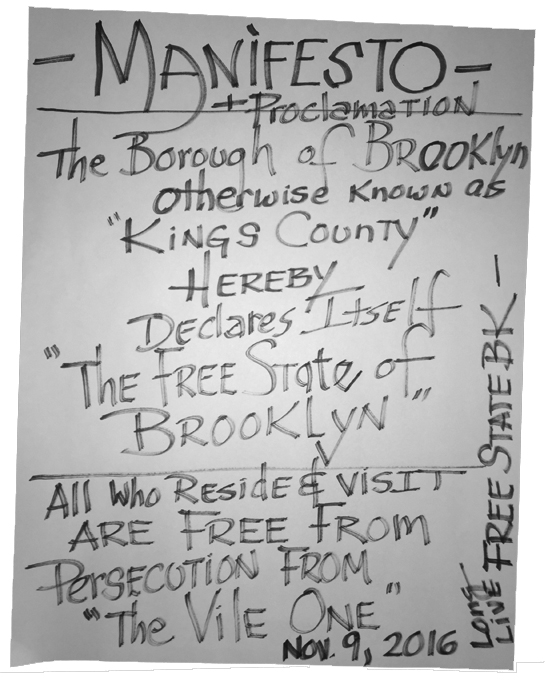 - MANiFESTO -
+ Proclamation
The Borough of Brooklyn
otherwise known as
"KiNGS County"
HEREBY
Declares Itself
"The FREE State of
BROOKLyN"
All who Reside & visit
ARE FREE From
PerSECUTiON FROM
"The Vile ONE"
Nov. 9, 2016
Long
LiVE FREE STATE BK -